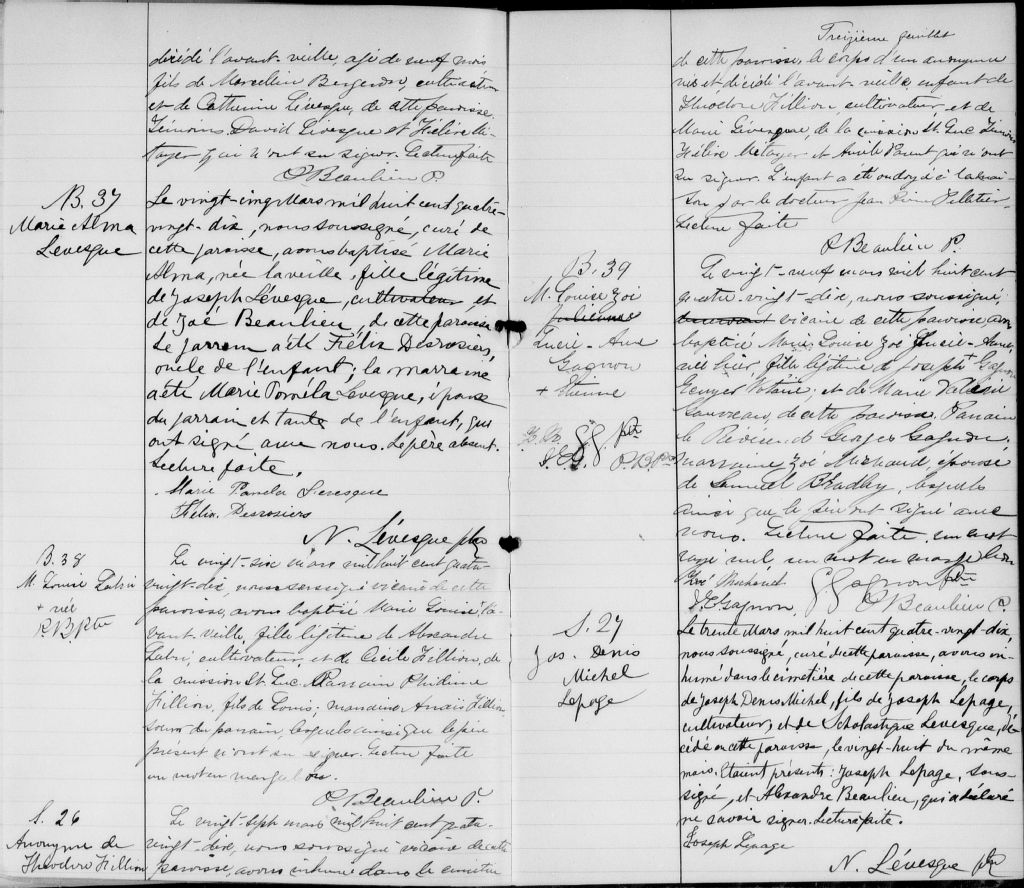 décédé l'avant-veille, age de neuf mois
fils de Marcellin Bergeron, cultivateur
et de Catherine Lévesque, de cette paroisse.
Témoins David Lévesque et Félix Mé-
tayer qui n'ont su signer. Lecture faite
P. Beaulieu P.
B. 37
Marie Alma
Levesque
Le vingt-cinq Mars mil huit cent quatre-
vingt-dix, nous soussigné, curé de
cette paroisse, avons baptisé Marie
Alma, née la veille, fille légitime
de Joseph Lévesque, cultivateur, et
de Zoé Beaulieu, de cette paroisse
Le parrain a été Félix Desrosiers,
oncle de l'enfant; la marraine
a été Marie Paméla Levesque, épouse
du parrain et tante de l'enfant, qui
ont signé avec nous. Le père absent.
Lecture faite.
Marie Pamela Levesque
Félix Desrosiers
N. Lévesque ptr
B. 38
M. Louise Labrie
+ née
P B Ptre
Le vingt-six mars mil huit cent quatre
vingt-dix, nous soussigné vicaire de cette
paroisse, avons baptisé Marie Louise + l'a-
vant veille, fille légitime de Alexandre
Labrie, cultivateur, et de Cécile Fillion, de
la mission St. Luc. Parrain Philéme
Fillion, fils de Louis; marraine Anaïs Fillion
soeur du parrain lesquels ainsi que le père
présent n'ont su signer. Lecture faite
un mot en marge bon.
P. Beaulieu P.
S. 26
Anonyme de
Théodore Fillion
Le vingt-sept mars mil huit cent quatre
vingt-dix, nous soussigné vicaire de cette
paroisse, avons inhumé dans le cimetière
Treizième feuillet
de cette paroisse, le corps d'un anonyme
né et décédé l'avant veille, enfant de
Théodore Fillion cultivateur et de
Marie Lévesque, de la mission St. Luc Témoins
Félix Métayer et Emile Parent qui n'ont
su signer. L'enfant a été ondoyé à la mai-
son par le docteur Jean Pelletier.
Lecture faite
P. Beaulieu P.
B. 39
M. Louise Zoé
Lucie-Anne
Gagnon
+ Etienne
Z. M.
J. E. G. GG Ptr
P. B Ptre
Le vingt-neuf mars mil huit cent
quatre-vingt-dix, nous soussigné,
vicaire de cette paroisse avons
baptisé Marie Louise Zoé Lucie-Anne
née hier, fille légitime de Joseph + Gagnon
Ecuyer Notaire; et de Marie
Sauveau, de cette paroisse. Parrain
le Révérend Georges Gagnon.
marraine Zoé Michaud, épouse
de Samuel Bradley, lesquels
ainsi que le père ont signé avec
nous. Lecture faite, un mot
rayé nul, un mot en marge bon
Zoé Michaud GGagnon Ptre
J. E. Gagnon, P Beaulieu P.
S. 27
Jos. Denis
Michel
Lepage
Le trente Mars mil huit cent quatre-vingt-dix,
nous soussigné, curé de cette paroisse, avons in-
humé dans le cimetière de cette paroisse, le corps
de Joseph Denis Michel, fils de Joseph Lepage,
cultivateur, et de Scholastique Levesque, dé-
cédé en cette paroisse, le vingt-huit du même
mois. Etaient présents: Joseph Lepage, sous-
signé, et Alexandre Beaulieu, qui a déclaré
ne savoir signer. Lecture faite.
Joseph Lepage
N. Lévesque ptr